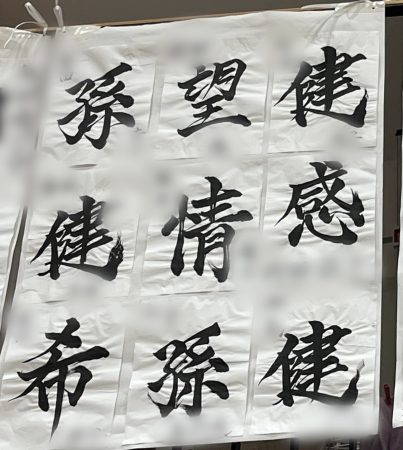 孫 望 健
健 情 感
希 孫 健